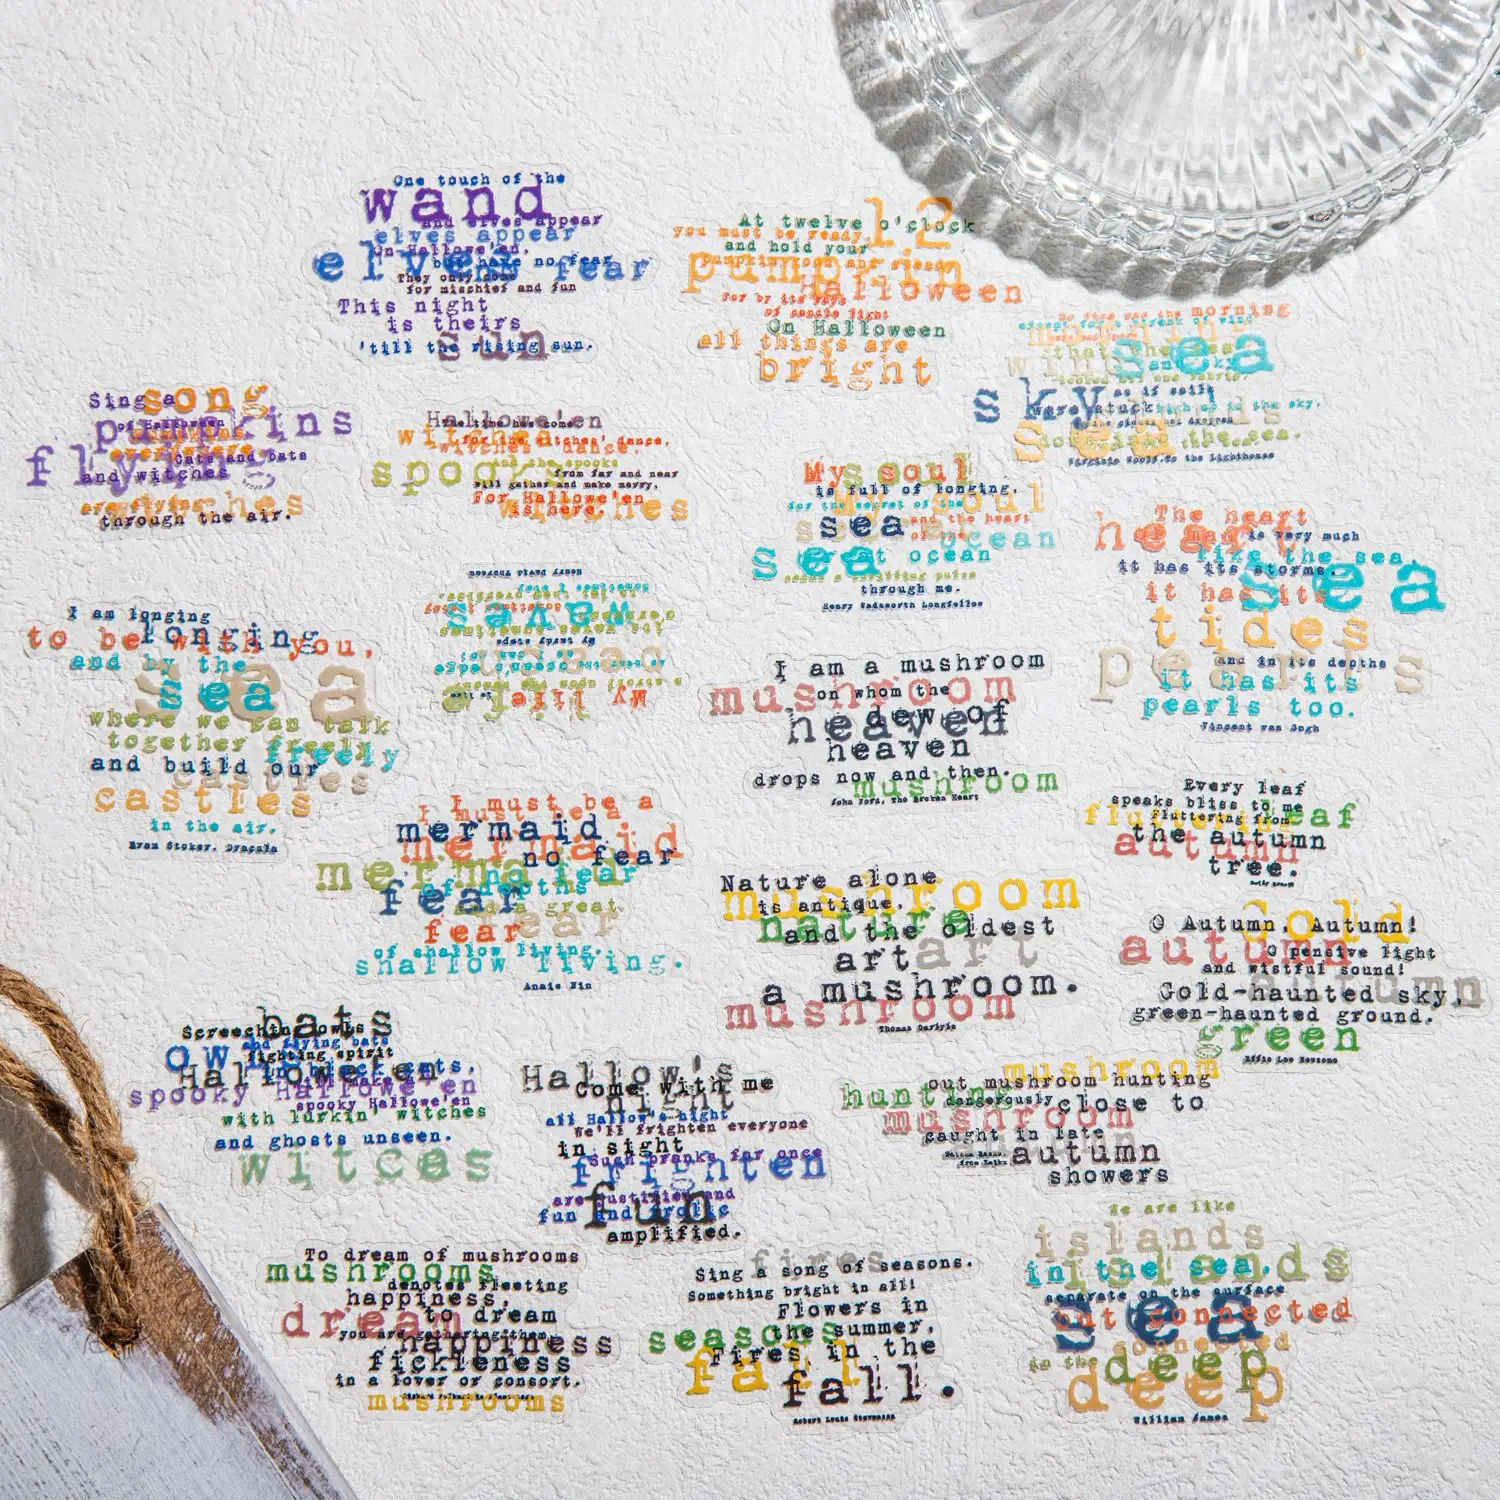 One touch of the
wand
and elves appear
elves appear
On Hallowe'en,
but have no fear
elves fear
They only come
for mischief and fun
This night
is theirs
sun
'till the rising sun.
12
At twelve o'clock
you must be ready,
and hold your
pumpkin
pumpkin moon and steady
Halloween
For by its rays
of candle light
On Halloween
all things are
bright
No fire was the morning
except for a streak of wind
that the sea
sea
wind
and sky
sky
as if sails
were stuck high up in the sky,
or the clouds had dropped
down into the sea.
Virginia Woolf, To the Lighthouse
Sing a
song
of Halloween
pumpkins
pumpkins
everywhere
flying
Cats and bats
and witches
witches
are flying
through the air.
Hallowe'en
The time has come
for the witches' dance,
witches dance.
and the spooks
spooks
from far and near
will gather and make merry,
For Hallowe'en
is here.
witches
My soul
is full of longing,
for the secret of the
my soul
sea
and the heart
of the
ocean
sea
great ocean
sends a thrilling pulse
through me.
Henry Wadsworth Longfellow
The heart
heart
of man is very much
like the sea,
it has its storms
sea
it has its
tides
pearls
and in its depths
it has its
pearls too.
Vincent van Gogh
I am longing
longing
to be with you,
and by the
sea
sea
where we can talk
together freely
freely
and build our
castles
castles
in the air.
Bram Stoker, Dracula
My life
is like
a stroll upon the
ocean
waves
I am a mushroom
mushroom
on whom the
dew of
heaven
heaven
drops now and then.
mushroom
John Ford, The Broken Heart
Every leaf
speaks bliss to me
fluttering leaf
Fluttering from
the autumn
autumn
tree.
I must be a
I must be a
mermaid
mermaid
no fear
mermaid
no fear
of depths
fear
and a great
fear
fear
of shallow living.
shallow living.
Anais Nin
Nature alone
mushroom
is antique,
nature
and the oldest
art
art
a mushroom.
mushroom
Thomas Carlyle
gold
O Autumn, Autumn!
autumn
O pensive light
and wistful sound!
autumn
Gold-haunted sky,
green-haunted ground.
green
Effie Lee Newsome
bats
Screechin' owls
and flying bats
owls
fighting spirit
in black cats.
Hallowe'en
spooky Hallowe'en
spooky Hallowe'en
with lurkin' witches
and ghosts unseen.
witces
Hallow's
Come with me
night
all Hallow's night
We'll frighten everyone
in sight
Such pranks for once
frighten
are justified and
fun
fun and frolic
amplified.
mushroom
out mushroom hunting
hunting
dangerously
close to
mushroom
caught in late
autumn
showers
To dream of mushrooms
mushrooms
denotes fleeting
happiness,
dream
to dream
you are gathering them,
happiness
fickleness
in a lover or consort.
mushrooms
fires
Sing a song of seasons.
Something bright in all!
Flowers in
seasons
the summer,
Fires in the
fall
fall.
Robert Louis Stevenson
We are like
islands
islands
in the sea,
separate on the surface
sea
but connected
connected
in the
deep
deep
William James